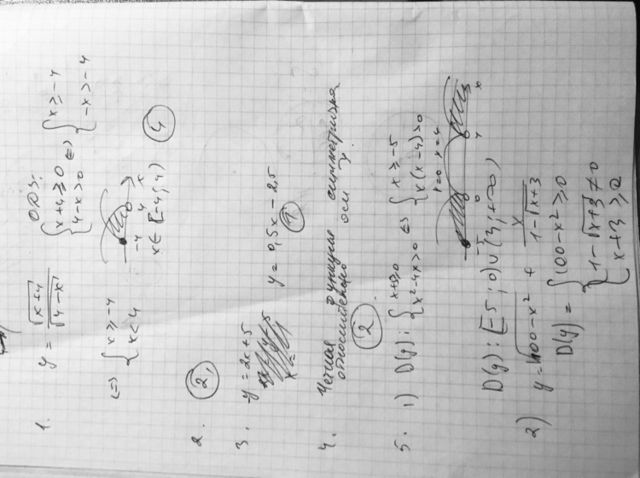 1. y = √(x+4) / √(4-x) ОДЗ:
{ x+4≥0 4-x>0 ⇔ { x≥-4 -x>-4
⇔ { x≥-4 x<4
-4 4 x
x∈[-4;4) ④
2. ②
3. y=2x+5 y=0,5x-2,5
①
4. Четная функция симметрична
относительно оси y.
②
5. 1) D(y): { x+5≥0 x²-4x>0 ⇔ { x≥-5 x(x-4)>0
x=0 x=4
-5 0 4 x
D(y): [-5;0)∪(3;+∞)
2) y=√100-x² + x / 1-√x+3
D(y) = { 100-x²≥0 1-√x+3≠0 x+3≥0